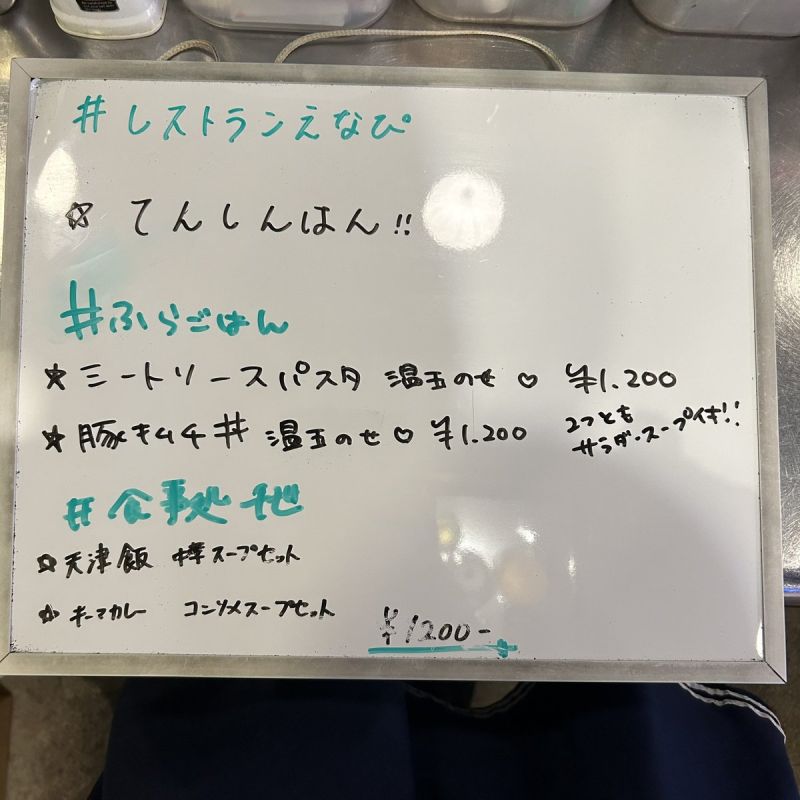 #レストランえなぴ
☆ てんしんはん!!
#ふらごはん
★ ミートソースパスタ 温玉のせ♡ ¥1.200
★ 豚キムチ丼 温玉のせ♡ ¥1.200 2つとも サラダ・スープ付き!!
#食事処
☆ 天津飯 中華スープセット
☆ キーマカレー コンソメスープセット
¥1200-